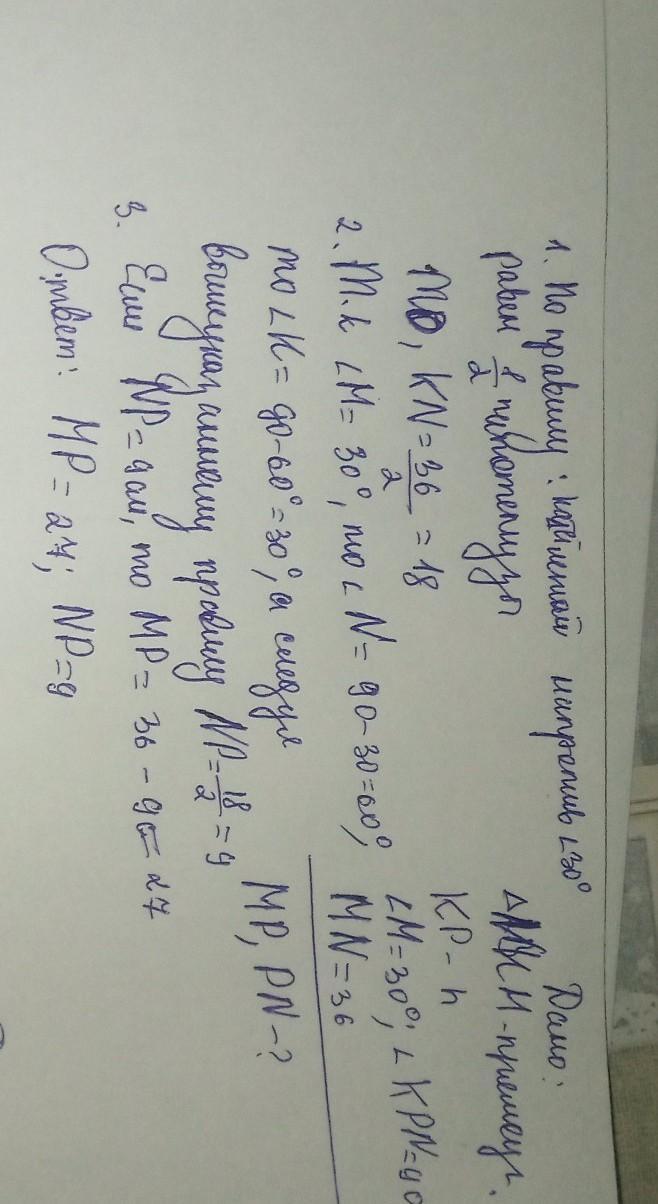 Дано:
△MKN - прямоуг.
KP - h
∠M = 30°; ∠KPN = 90
MN = 36
MP, PN - ?
1. По правилу: катет напротив ∠30°
равен 1/2 гипотенузы
KN = 36/2 = 18
2. Т.к ∠M = 30°, то ∠N = 90-30=60°,
то ∠K = 90-60° = 30°, а следуя
вышеуказанному правилу NP = 18/2 = 9
3. Если NP = 9см, то MP = 36 - 9 = 27
Ответ: MP = 27; NP = 9